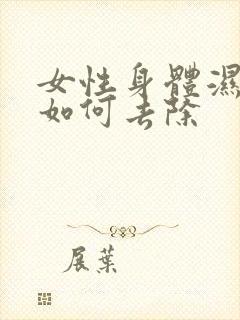 女性身體濕
如何去除
展葉